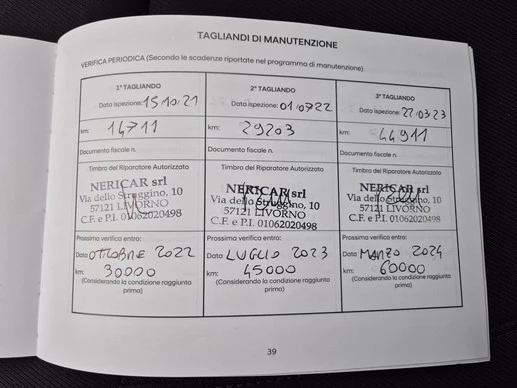 TAGLIANDI DI MANUTENZIONE
VERIFICA PERIODICA (Secondo le scadenze riportate nel programma di manutenzione)
1° TAGLIANDO
Data ispezione: 15 10 21
km: 14711
Documento fiscale n.
Timbro del Riparatore Autorizzato
NERICAR srl
Via dello Struggino, 10
57121 LIVORNO
C.F. e P.I. 01062020498
Prossima verifica entro:
Data OTTOBRE 2022
km: 30000
(Considerando la condizione raggiunta
prima)
2° TAGLIANDO
Data ispezione: 01/07/22
km: 29203
Documento fiscale n.
Timbro del Riparatore Autorizzato
NERICAR srl
Via dello Struggino, 10
57121 LIVORNO
C.F. e P.I. 01062020498
Prossima verifica entro:
Data LUGLIO 2023
km: 45000
(Considerando la condizione raggiunta
prima)
3° TAGLIANDO
Data ispezione: 27/03/23
km: 44911
Documento fiscale n.
Timbro del Riparatore Autorizzato
NERICAR srl
Via dello Struggino, 10
57121 LIVORNO
C.F. e P.I. 01062020498
Prossima verifica entro:
Data MARZO 2024
km: 60000
(Considerando la condizione raggiunta
prima)
39